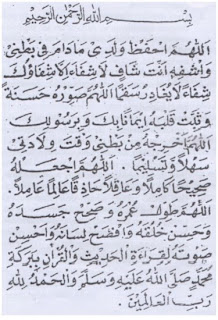 بِسْــــمِ اللهِ الرَّحْمٰنِ الرَّحِيْمِ
اَللّٰهُمَّ احْفَظْ وَلَدِىْ مَادَامَ فِىْ بَطْنِىْ
وَاشْفِهِ اَنْتَ شَافٍ لَا شِفَاءَ اِلَّا شِفَاؤُكَ
شِفَاءً لَا يُغَادِرُ سَقَمًا اَللّٰهُمَّ صَوِّرْهُ حَسَنَةً
وَثَبِّتْ قَلْبَهُ اِيْمَانًا بِكَ وَبِرَسُوْلِكَ
اَللّٰهُمَّ اَخْرِجْهُ مِنْ بَطْنِىْ وَقْتَ وِلَادَتِىْ
سَهْلًا وَتَسْلِيْمًا . اَللّٰهُمَّ اجْعَلْهُ
صَحِيْحًا كَامِلًا وَعَاقِلًا حَاذِقًا عَالِمًا عَامِلًا.
اَللّٰهُمَّ طَوِّلْ عُمْرَهُ وَصَحِّحْ جَسَدَهُ
وَحَسِّنْ خُلُقَهُ وَافْصَحْ لِسَانَهُ وَاَحْسِنْ
صَوْتَهُ لِقِرَاءَةِ الْحَدِيْثِ وَالْقُرْاٰنِ بِبَرَكَةِ
مُحَمَّدٍ صَلَّى اللهُ عَلَيْهِ وَسَلَّمَ وَالْحَمْدُ لِلّٰهِ
رَبِّ الْعَالَمِيْنَ .